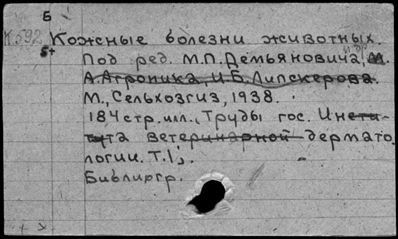 Б
К592 Кожные болезни животных.
Под ред. М.П.Демьяновича, и др.
А.Агроника, И.Б.Липскерова.
М., Сельхозгиз, 1938.
184 стр. илл., Труды гос. Инсти-
тута ветеринарной дермато
логии. Т.1;
Библиогр.